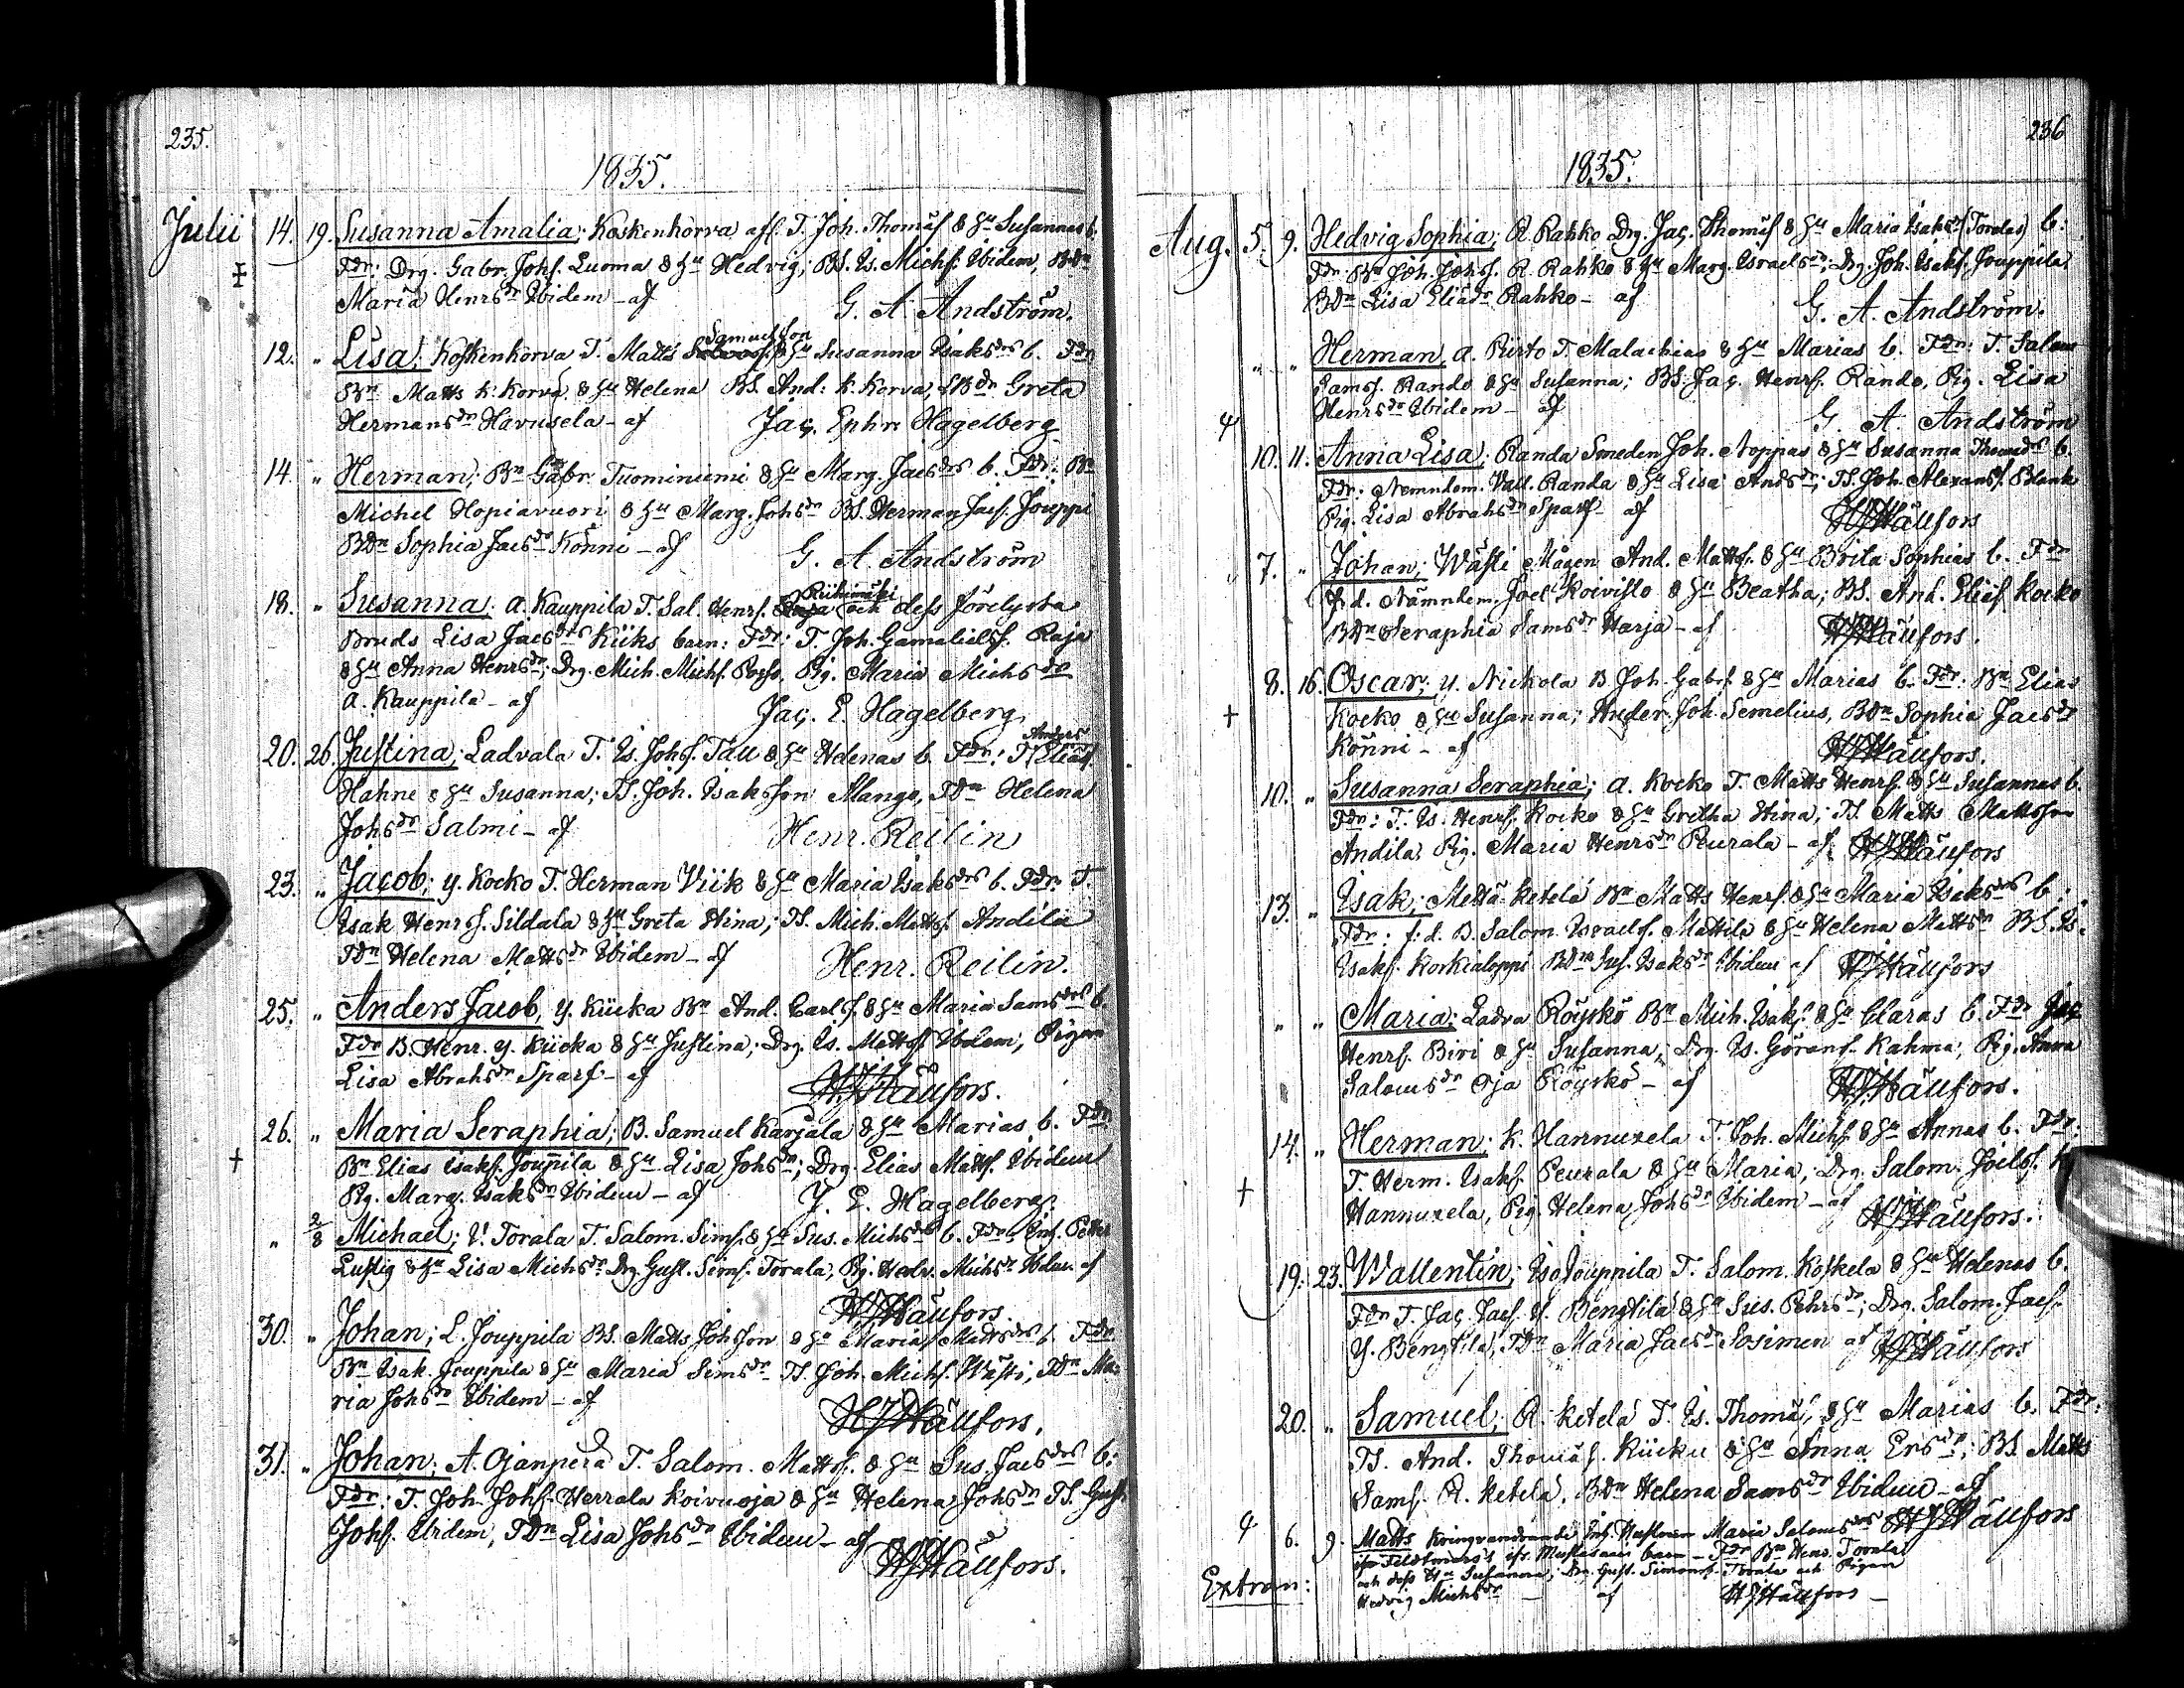 235.
1835.
Julii 14. 19. Susanna Amalia; Koskenkorva afs. T. Joh. Thomæs. & Hu Susannas b.
Fdr: Drg. Gabr. Johs. Luoma & Hu Hedvig; BS. Is. Michs. Ibidem, BDn
Maria Henrsdr Ibidem - af G. A. Andström.
12. " Lisa; Koskenkorva T. Matts Samuelsson & Hu Susanna Isaksdrs b. Fdr
Bn Matts K. Korva & Hu Helena BS. And. K. Korva, BDn Greta
Hermansdr Havusela - af Jac. Ephr. Hagelberg
14. " Herman; Bn Gabr. Tuominiemi & Hu Marg. Jacsdrs b. Fdr: Bn
Michel Hopiavuori & Hu Marg. Johsdr BS. Herman Jacs. Jouppi
BDn Sophia Jacsdr Könni - af G. A. Andström
18. " Susanna; A. Kauppila T. Sal. Henrs. Riihimäki och dess Förelysta
Bruds Lisa Jacsdrs Kiiks barn: Fdr: T. Joh. Gamalielss. Raja
& Hu Anna Henrsdr; Drg. Mich. Michs. Pig. Maria Michsdr
A. Kauppila - af Jac. E. Hagelberg
20. 26. Justina; Ladvala T. Is. Johs. Tau & Hu Helenas b. Fdr: T. Anders Eliæs.
Hahne & Hu Susanna; TS. Joh. Isaksson Mango, TDn Helena
Johsdr Salmi - af Henr. Reilin
23. " Jacob; y. Kocko T. Herman Viik & Hu Maria Isaksdrs b. Fdr: T.
Isak Henrs. Sildala & Hu Greta Stina; TS. Mich. Matts. Andila
TDn Helena Mattsdr Ibidem - af Henr. Reilin.
25. " Anders Jacob, y. Kiicka Bn And. Carls. & Hu Maria Samsdrs b.
Fdr B. Henr. y. Kiicka & Hu Justina; Drg. Is. Matts. Ibidem, Pigan
Lisa Abrahsdr Sparf - af HJHällfors.
26. " Maria Seraphia; B. Samuel Karjala & Hu Marias b. Fdr
Bn Elias Isaks. Jouppila & Hu Lisa Johsdr; Drg. Elias Matts. Ibidem
Pig. Marg. Isaksdr Ibidem - af J. E. Hagelberg.
" 2/8 Michael; Y. Torala T. Salom. Sims. & Hu Sus. Michsdrs b. Fdr Inh. Petter
Lustig & Hu Lisa Michsdr Drg Gust. Sims. Torala, Pig. Hedv. Michsdr Ibidem af
HJHällfors
30. " Johan; L. Jouppila BS. Matts Johsson & Hu Maria Mattsdrs b. Fdr
Bn Isak Jouppila & Hu Maria Simsdr TS. Joh. Michs. Wästi, TDn Ma-
ria Johsdr Ibidem - af HJHällfors.
31. " Johan; A. Ojanperä T. Salom. Matts. & Hu Sus. Jacsdrs b:
Fdr: T. Joh. Johs. Herrala Koivuoja & Hu Helena Johsdr TS. Gust.
Johs. Ibidem, TDn Lisa Johsdr Ibidem - af
HJHällfors.
236
1835.
Aug. 5. 9. Hedvig Sophia; R. Rahko Drg. Jac. Thomæs. & Hu Maria Isaksdr (Toralas) b:
Fdr: Bn Joh. Johs. R. Rahko & Hu Marg. Israelsdr; Drg. Joh. Isaks. Jouppila,
BDn Lisa Eliædr Rahko - af G. A. Andström.
" " Herman, A. Pirto T. Malachias & Hu Marias b. Fdr: T. Salom
Sams. Rando & Hu Susanna; BS. Jac. Henrs. Rando, Pig. Lisa
Henrsdr Ibidem - af G. A. Andström
10. 11. Anna Lisa; Randa Smeden Joh. Noppas & Hu Susanna Thomædrs b.
Fdr: Nämndem. Vall. Randa & Hu Lisa Andsdr; TS. Joh. Alexands. Blank
Pig. Lisa Abrahsdr Sparf - af HJHällfors
" 7. " Johan; Wästi Mågen And. Matts. & Hu Brita Sophias b. Fdr
f. d. Nämndem. Joel Koivisto & Hu Beatha; BS. And. Eliæs. Kocko
BDn Seraphia Samsdr Harja - af HJHällfors.
8. 16. Oscar; y. Nickola B Joh. Gabrs. & Hu Marias b. Fdr: Bn Elias
Kocko & Hu Susanna; Under. Joh. Semelius, BDn Sophia Jacsdr
Könni - af HJHällfors.
10. " Susanna Seraphia; A. Kocko T. Matts Henrs. & Hu Susannas b.
Fdr: T. Is. Henrs. Kocko & Hu Gretha Stina; TS. Matts Mattsson
Andila, Pig. Maria Henrsdr Peurala - af HJHällfors
13. " Isak; Mettä Ketelä Bn Matts Henrs. & Hu Maria Isaksdrs b.
Fdr: f. d. B. Salom. Israels. Mattila & Hu Helena Mattsdr BS. Is.
Isaks. Korkialoppi BDn Sus. Isaksdr Ibidem af HJHällfors
" " Maria; Ladva Röyskö Bn Mich. Isaks. & Hu Claras b. Fdr Jac.
Henrs. Biri & Hu Susanna; Drg. Is. Görans. Kahma, Pig. Anna
Salomsdr Oja Röyskö - af HJHällfors.
14. " Herman; K. Hannuxela T. Joh. Michs. & Hu Annas b. Fdr:
T. Herm. Isaks. Peurala & Hu Maria, Drg. Salom. Joels. K.
Hannuxela, Pig. Helena Johsdr Ibidem - af HJHällfors.
19. 23. Wallentin; Iso Jouppila T. Salom. Koskela & Hu Helenas b.
Fdr T. Jac. Jacs. Y. Bengtila & Hu Sus. Pehrsdr; Drg. Salom. Jacs.
Y. Bengtila, TDn Maria Jacsdr Sosimen af HJHällfors
20. " Samuel; R. Ketelä T. Is. Thomæs. & Hu Marias b. Fdr:
TS. And. Thomæs. Kiicku & Hu Anna Ersdr; BS. Matts
Sams. R. Ketelä, BDn Helena Samsdr Ibidem - af
HJHällfors
6. 9. Matts Kringvandrande Inh. Hustrun Maria Salomsdrs
ifr. Mustasaari barn - Fdr Bn Henr. Torala
och dess Hu Susanna; Dr. Gust. Simons. Torala och Pigan
Extran: Hedvig Michsdr - af HJHällfors -